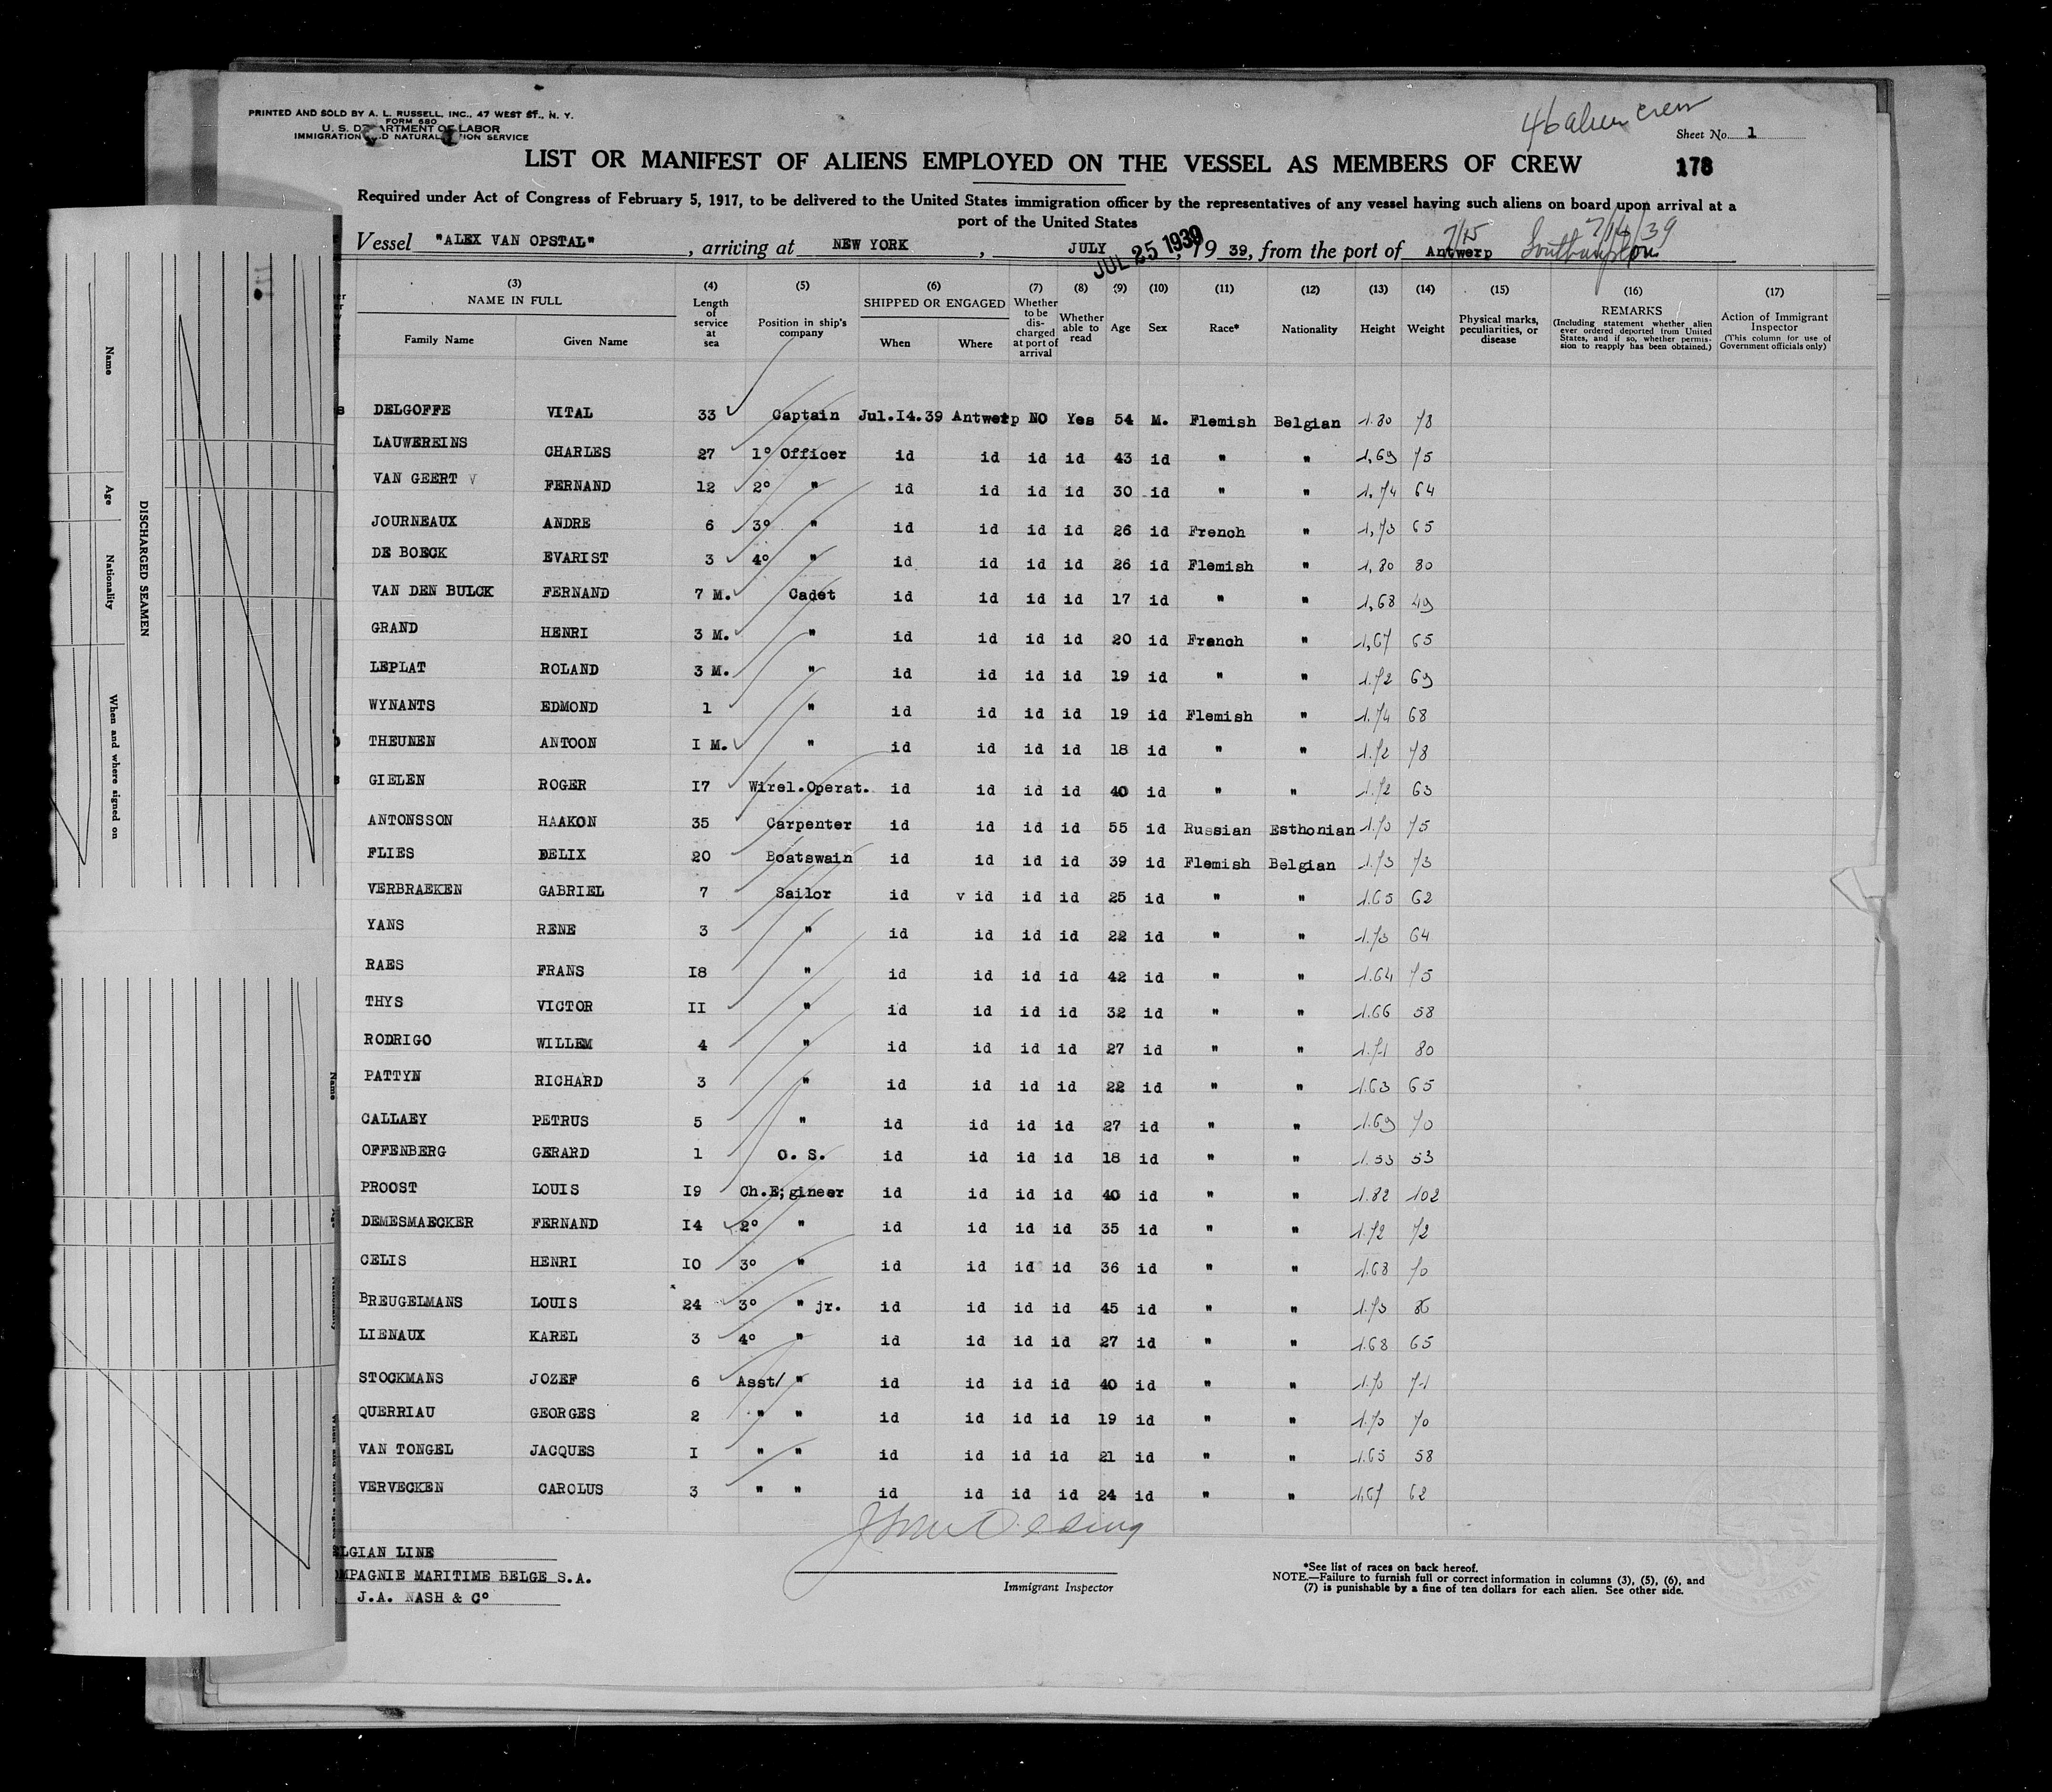 PRINTED AND SOLD BY A. L. RUSSELL, INC., 47 WEST ST., N. Y.
FORM 680
U. S. DEPARTMENT OF LABOR
IMMIGRATION AND NATURALIZATION SERVICE
46 alien crew
Sheet No. 1
178
LIST OR MANIFEST OF ALIENS EMPLOYED ON THE VESSEL AS MEMBERS OF CREW
Required under Act of Congress of February 5, 1917, to be delivered to the United States immigration officer by the representatives of any vessel having such aliens on board upon arrival at a
port of the United States
7/15 7/14/39
Vessel "ALEX VAN OPSTAL", arriving at NEW YORK, JULY JUL 25 1939, 19 39, from the port of Antwerp Southampton
(3) (4) (5) (6) (7) (8) (9) (10) (11) (12) (13) (14) (15) (16) (17)
NAME IN FULL Length of service at sea Position in ship's company SHIPPED OR ENGAGED Whether to be discharged at port of arrival Whether able to read Age Sex Race* Nationality Height Weight Physical marks, peculiarities, or disease REMARKS (Including statement whether alien ever ordered deported from United States, and if so, whether permission to reapply has been obtained.) Action of Immigrant Inspector (This column for use of Government officials only)
Family Name Given Name When Where
DELGOFFE VITAL 33 Captain Jul.I4.39 Antwerp NO Yes 54 M. Flemish Belgian 1.80 78
LAUWEREINS CHARLES 27 1° Officer id id id id 43 id " " 1,69 75
VAN GEERT V FERNAND 12 2° " id id id id 30 id " " 1,74 64
JOURNEAUX ANDRE 6 3° " id id id id 26 id French " 1,73 65
DE BOECK EVARIST 3 4° " id id id id 26 id Flemish " 1,80 80
VAN DEN BULCK FERNAND 7 M. Cadet id id id id 17 id " " 1,68 49
GRAND HENRI 3 M. " id id id id 20 id French " 1,67 65
LEPLAT ROLAND 3 M. " id id id id 19 id " " 1.72 69
WYNANTS EDMOND 1 " id id id id 19 id Flemish " 1.74 68
THEUNEN ANTOON I M. " id id id id 18 id " " 1.72 78
GIELEN ROGER I7 Wirel.Operat. id id id id 40 id " " 1.72 63
ANTONSSON HAAKON 35 Carpenter id id id id 55 id Russian Esthonian 1.70 75
FLIES DELIX 20 Boatswain id id id id 39 id Flemish Belgian 1.73 73
VERBRAEKEN GABRIEL 7 Sailor id v id id id 25 id " " 1.65 62
YANS RENE 3 " id id id id 22 id " " 1.73 64
RAES FRANS I8 " id id id id 42 id " " 1.64 75
THYS VICTOR II " id id id id 32 id " " 1.66 58
RODRIGO WILLEM 4 " id id id id 27 id " " 1.71 80
PATTYN RICHARD 3 " id id id id 22 id " " 1.63 65
CALLAEY PETRUS 5 " id id id id 27 id " " 1.69 70
OFFENBERG GERARD 1 O. S. id id id id 18 id " " 1.53 53
PROOST LOUIS I9 Ch.E;gineer id id id id 40 id " " 1.82 102
DEMESMAECKER FERNAND I4 2° " id id id id 35 id " " 1.72 72
CELIS HENRI IO 3° " id id id id 36 id " " 1.68 70
BREUGELMANS LOUIS 24 3° " jr. id id id id 45 id " " 1.73
LIENAUX KAREL 3 4° " id id id id 27 id " " 1.68 65
STOCKMANS JOZEF 6 Asst/ " id id id id 40 id " " 1.70 71
QUERRIAU GEORGES 2 " " id id id id 19 id " " 1.70 70
VAN TONGEL JACQUES I " " id id id id 21 id " " 1.65 58
VERVECKEN CAROLUS 3 " " id id id id 24 id " " 1,67 62
LGIAN LINE
MPAGNIE MARITIME BELGE S.A.
J.A. NASH & C°
Immigrant Inspector
*See list of races on back hereof.
NOTE.—Failure to furnish full or correct information in columns (3), (5), (6), and
(7) is punishable by a fine of ten dollars for each alien. See other side.
DISCHARGED SEAMEN
Name
Age
Nationality
When and where signed on